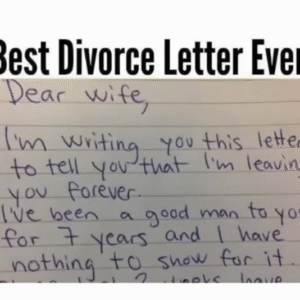 Best Divorce Letter Ever
Dear wife,
I'm writing you this letter
to tell you that I'm leavin
you forever.
I've been a good man to yo
for 7 years and I have
nothing to show for it.